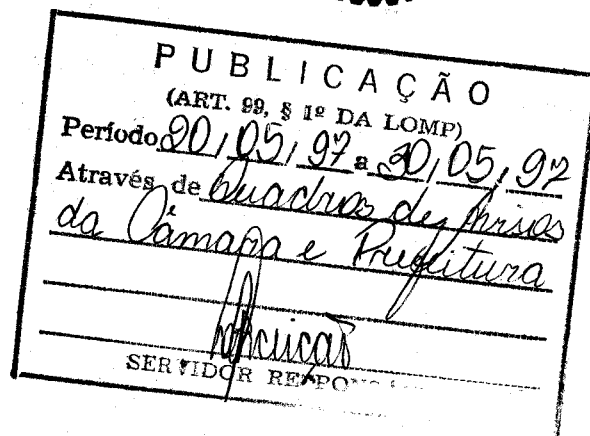 PUBLICAÇÃO
(ART. 99, § 1º DA LOMP)
Período 20 / 05 / 97 a 30 / 05 / 97
Através de Quadros de Avisos
da Câmara e Prefeitura
SERVIDOR